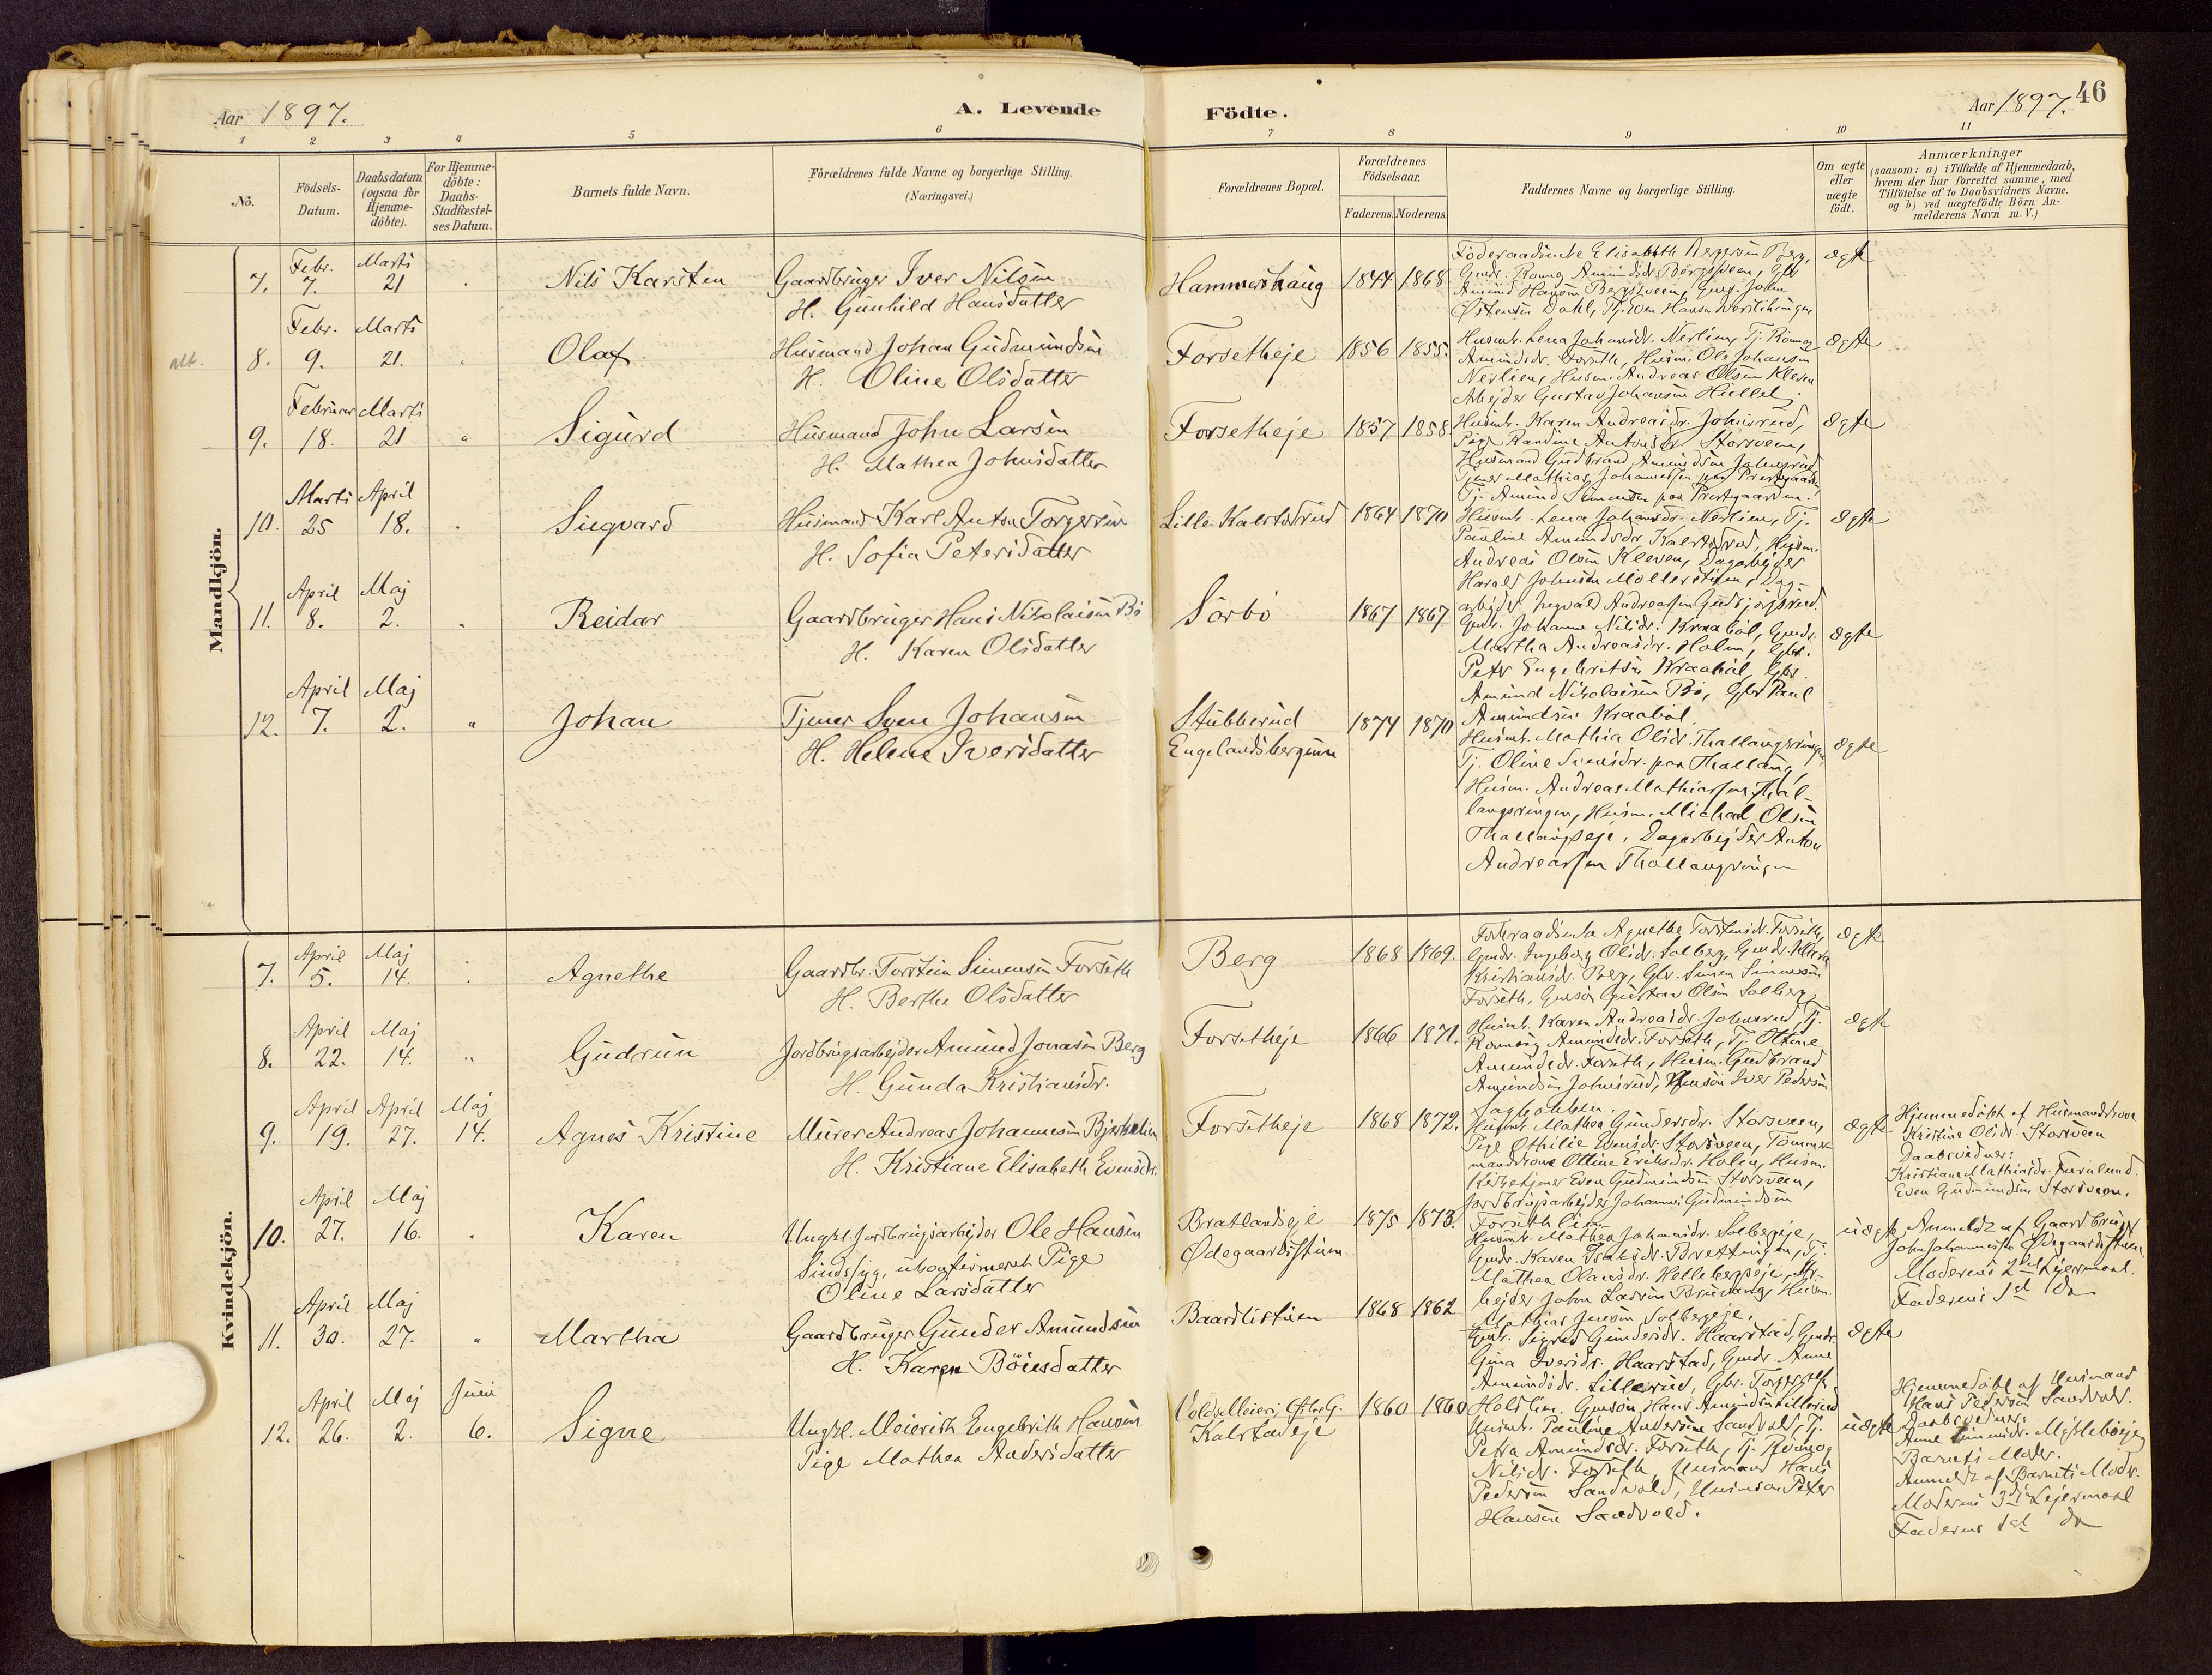 Aar 1897.
A. Levende
Födte.
Aar 1897.
46
1 2 3 4 5 6 7 8 9 10 11
No.
Födsels-Datum.
Daabsdatum (ogsaa for Hjemme-döbte).
For Hjemme-döbte: Daabs-Stadfæstel-ses Datum.
Barnets fulde Navn.
Forældrenes fulde Navne og borgerlige Stilling.
(Næringsvei.)
Forældrenes Bopæl.
Forældrenes Födselsaar.
Faderens. Moderens.
Faddernes Navne og borgerlige Stilling.
Om ægte eller uægte födt.
Anmærkninger
(saasom: a) i Tilfælde af Hjemmedaab, hvem der har forrettet samme, med Tilföielse af to Daabsvidners Navne, og b) ved uægtefödte Börn An-melderens Navn m. V.)
Mandkjön.
7. Febr. 7. Marts 21 Nils Karsten
Gaardbruger Iver Nilsen
H. Gunhild Hansdatter
Hammershaug 1844 1868
Amund Hansen Bergsveen, Gmsj. John
ægte
alt. 8. Febr. 9. Marts 21. Olaf
Husmand Johan Gudmundsen
H. Oline Olsdatter
Forsetheje 1856 1855.
Husmk. Lena Johansdr. Nerlien, Tj. Rönnog
Amundsdr. Forseth, Husm. Ole Johansen
Nerlien, Husm. Andreas Olsen Kleven
Arbejder Gustav Johansen
ægte
9. Februar 18. Marts 21 " Sigurd
Husmand John Larsen
H. Mathea Johnsdatter
Forsetheje 1857 1858
Husmk. Karen Andreasdr. Johnsrud,
Pige Randine Antonsdr. Storsveen,
Husmand Gudbrand Amundsen Johnsrud,
Tjener Mathias Johannessen paa Prestgaarden
Tj. Amund Simensen paa Prestgaarden.
ægte
10. Marts 25 April 18. Sigvard
Husmand Karl Anton Torgersen
H. Sofia Petersdatter
Lille-Kalstadrud 1864 1870
Husmk. Lena Johansdr. Nerlien, Tj.
Pauline Amundsdr. Kalstadrud, Husm.
Andreas Olsen Kleven, Dagarbejder
Harald Johnsen Möllerstuen, Dag-
arbejder Ingvald Andreassen
ægte
11. April 8. Maj 2. Reidar
Gaardbruger Hans Nikolaisen Bö
H. Karen Olsdatter
Sörbö 1867 1867
Gmk. Johanne Nilsdr. Kraaböl, Gmdr.
Martha Andreasdr. Holm, Gbr.
Peter Engebritsen Kraaböl, Gbr.
Amund Nikolaisen Bö, Gbr. Paul
Amundsen Kraaböl.
ægte
12. April 7. Maj 2. " Johan
Tjener Sven Johansen
H. Helene Iversdatter
Stubberud
Engelandsbergene
1874 1870
Husmk. Mathia Olsdr. Thallaugsringen,
Tj. Oline Svensdr. paa Thallaug,
Husm. Andreas Mathiassen Thal-
laugsringen, Husm. Michael Olsen
Thallaugseje, Dagarbejder Anton
Andreassen Thallaugsringen
ægte
Kvindekjön.
7. April 5. Maj 14. Agnethe
Gaardbr. Torstein Simensen Forseth
H. Berthe Olsdatter
Berg 1868 1869
Foderaadsenke Agnethe Torsteinsdr. Forseth,
Gmdr. Ingeborg Olsdr. Solberg, Gmdr.
Kristiansdr. Berg, Gbr. Simen Simensen
Forseth, Gmsön Gustav Olsen Solberg
ægte
8. April 22. Maj 14. " Gudrun
Jordbrugsarbejder Amund Jonasen Berg
H. Gunda Kristiansdr.
Forsetheje 1866 1871.
Husmk. Karen Andreasdr. Johnsrud, Tj.
Rönnaug Amundsdr. Forseth, Tj. Oline
Amundsdr. Forseth, Husm. Gudbrand
Amundsen Johnsrud, Husmsön Iver Pedersen
ægte
9. April 19. April 27. Maj 14. Agnes Kristine
Murer Andreas Johannesen
H. Kristiane Elisabeth Evensdr.
Forsetheje 1868 1872.
Husmk. Mathea Gundersdr. Storsveen,
Pige Othilie Evensdr. Storsveen, Tömmer-
mandskone Otline Eriksdr. Holen, Husm.
Kirketjener Even Gudmundsen Storsveen,
Jordbrugsarbejder Johannes Gudmundsen
Forsethlien
ægte
Hjemmedöbt af Husmandskone
Kristine Olsdr. Storsveen
Daabsvidner:
Kristiane Mathiasdr. Furulund.
Even Gudmundsen Storsveen.
10. April 27. Maj 16. Karen
Ungkl. Jordbrugsarbejder Ole Hansen
Sindssyg, ukonfirmeret Pige
Oline Larsdatter
Bratlandseje
Ödegaardsstuen
1875 1873.
Husmk. Mathea Johansdr. Solbergeje,
Gmdr. Karen Brettingen, Tj.
Mathea Olausdr. Hellebergseje, Ar-
bejder John Larsen, Husm.
Mathias Jensen Solbergeje.
uægte
Anmeldt af Gaardbruger
John Johannesen Ödegaardsstuen.
Moderens 2det Lejermaal.
Faderens 1ste do
11. April 30. Maj 27. " Martha
Gaardbruger Gunder Amundsen
H. Karen Böiesdatter
Baardlistuen 1868 1862
Gmk. Sigrid Gundersdr. Haarstad, Gmdr.
Gina Iversdr. Haarstad, Gmdr. Anne
Amundsdr. Lillerud, Gbr.
Gmsön Hans Amundsen Lillerud
ægte
12. April 26. Maj 2. Juni 6. Signe
Ungkl. Meierist Engebrith Hansen
Pige Mathea Andersdatter
Kalstadeje
1860 1860
Husmk. Pauline Andersen Sandvold, Tj.
Petra Amundsdr. Forseth, Tj. Rönnog
Nilsdr. Forseth, Husmand Hans
Pedersen Sandvold, Husmsön Peter
Hansen Sandvold.
uægte
Hjemmedöbt af Husmand
Hans Pedersen Sandvold.
Daabsvidner:
Barnets Moder.
Anmeldt af Barnets Moder.
Moderens 3die Lejermaal
Faderens 1ste do